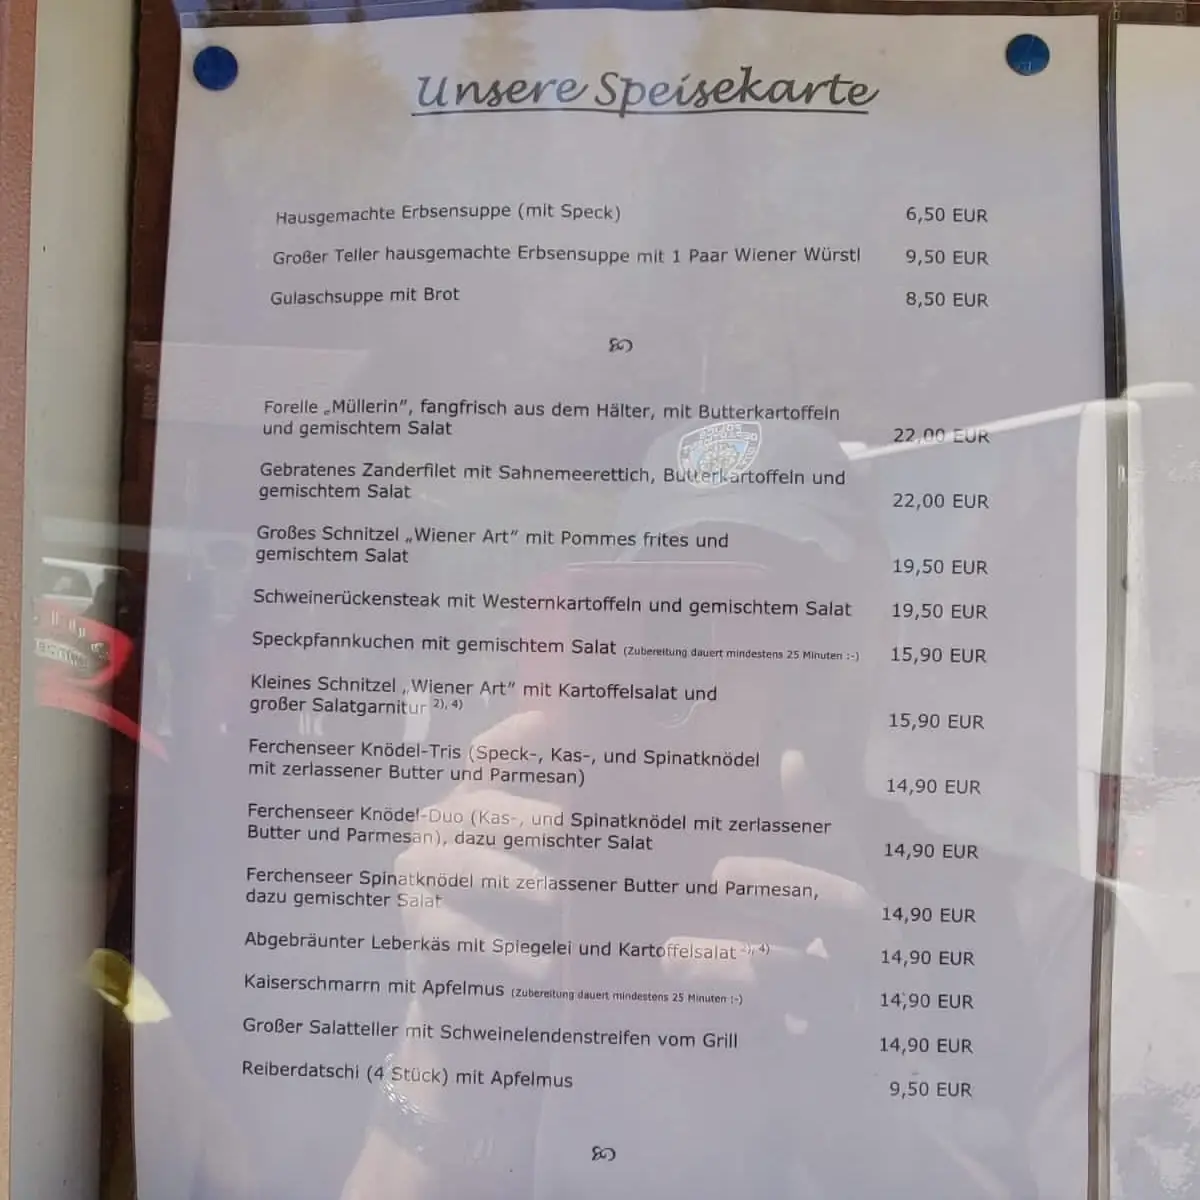 Unsere Speisekarte
Hausgemachte Erbsensuppe (mit Speck) 6,50 EUR
Großer Teller hausgemachte Erbsensuppe mit 1 Paar Wiener Würstl 9,50 EUR
Gulaschsuppe mit Brot 8,50 EUR
Forelle „Müllerin“, fangfrisch aus dem Hälter, mit Butterkartoffeln
und gemischtem Salat 22,00 EUR
Gebratenes Zanderfilet mit Sahnemeerettich, Butterkartoffeln und
gemischtem Salat 22,00 EUR
Großes Schnitzel „Wiener Art“ mit Pommes frites und
gemischtem Salat 19,50 EUR
Schweinerückensteak mit Westernkartoffeln und gemischtem Salat 19,50 EUR
Speckpfannkuchen mit gemischtem Salat (Zubereitung dauert mindestens 25 Minuten :-) 15,90 EUR
Kleines Schnitzel „Wiener Art“ mit Kartoffelsalat und
großer Salatgarnitur 2), 4) 15,90 EUR
Ferchenseer Knödel-Tris (Speck-, Kas-, und Spinatknödel
mit zerlassener Butter und Parmesan) 14,90 EUR
Ferchenseer Knödel-Duo (Kas-, und Spinatknödel mit zerlassener
Butter und Parmesan), dazu gemischter Salat 14,90 EUR
Ferchenseer Spinatknödel mit zerlassener Butter und Parmesan,
dazu gemischter Salat 14,90 EUR
Abgebräunter Leberkäs mit Spiegelei und Kartoffelsalat 2), 4) 14,90 EUR
Kaiserschmarrn mit Apfelmus (Zubereitung dauert mindestens 25 Minuten :-) 14,90 EUR
Großer Salatteller mit Schweinelendenstreifen vom Grill 14,90 EUR
Reiberdatschi (4 Stück) mit Apfelmus 9,50 EUR